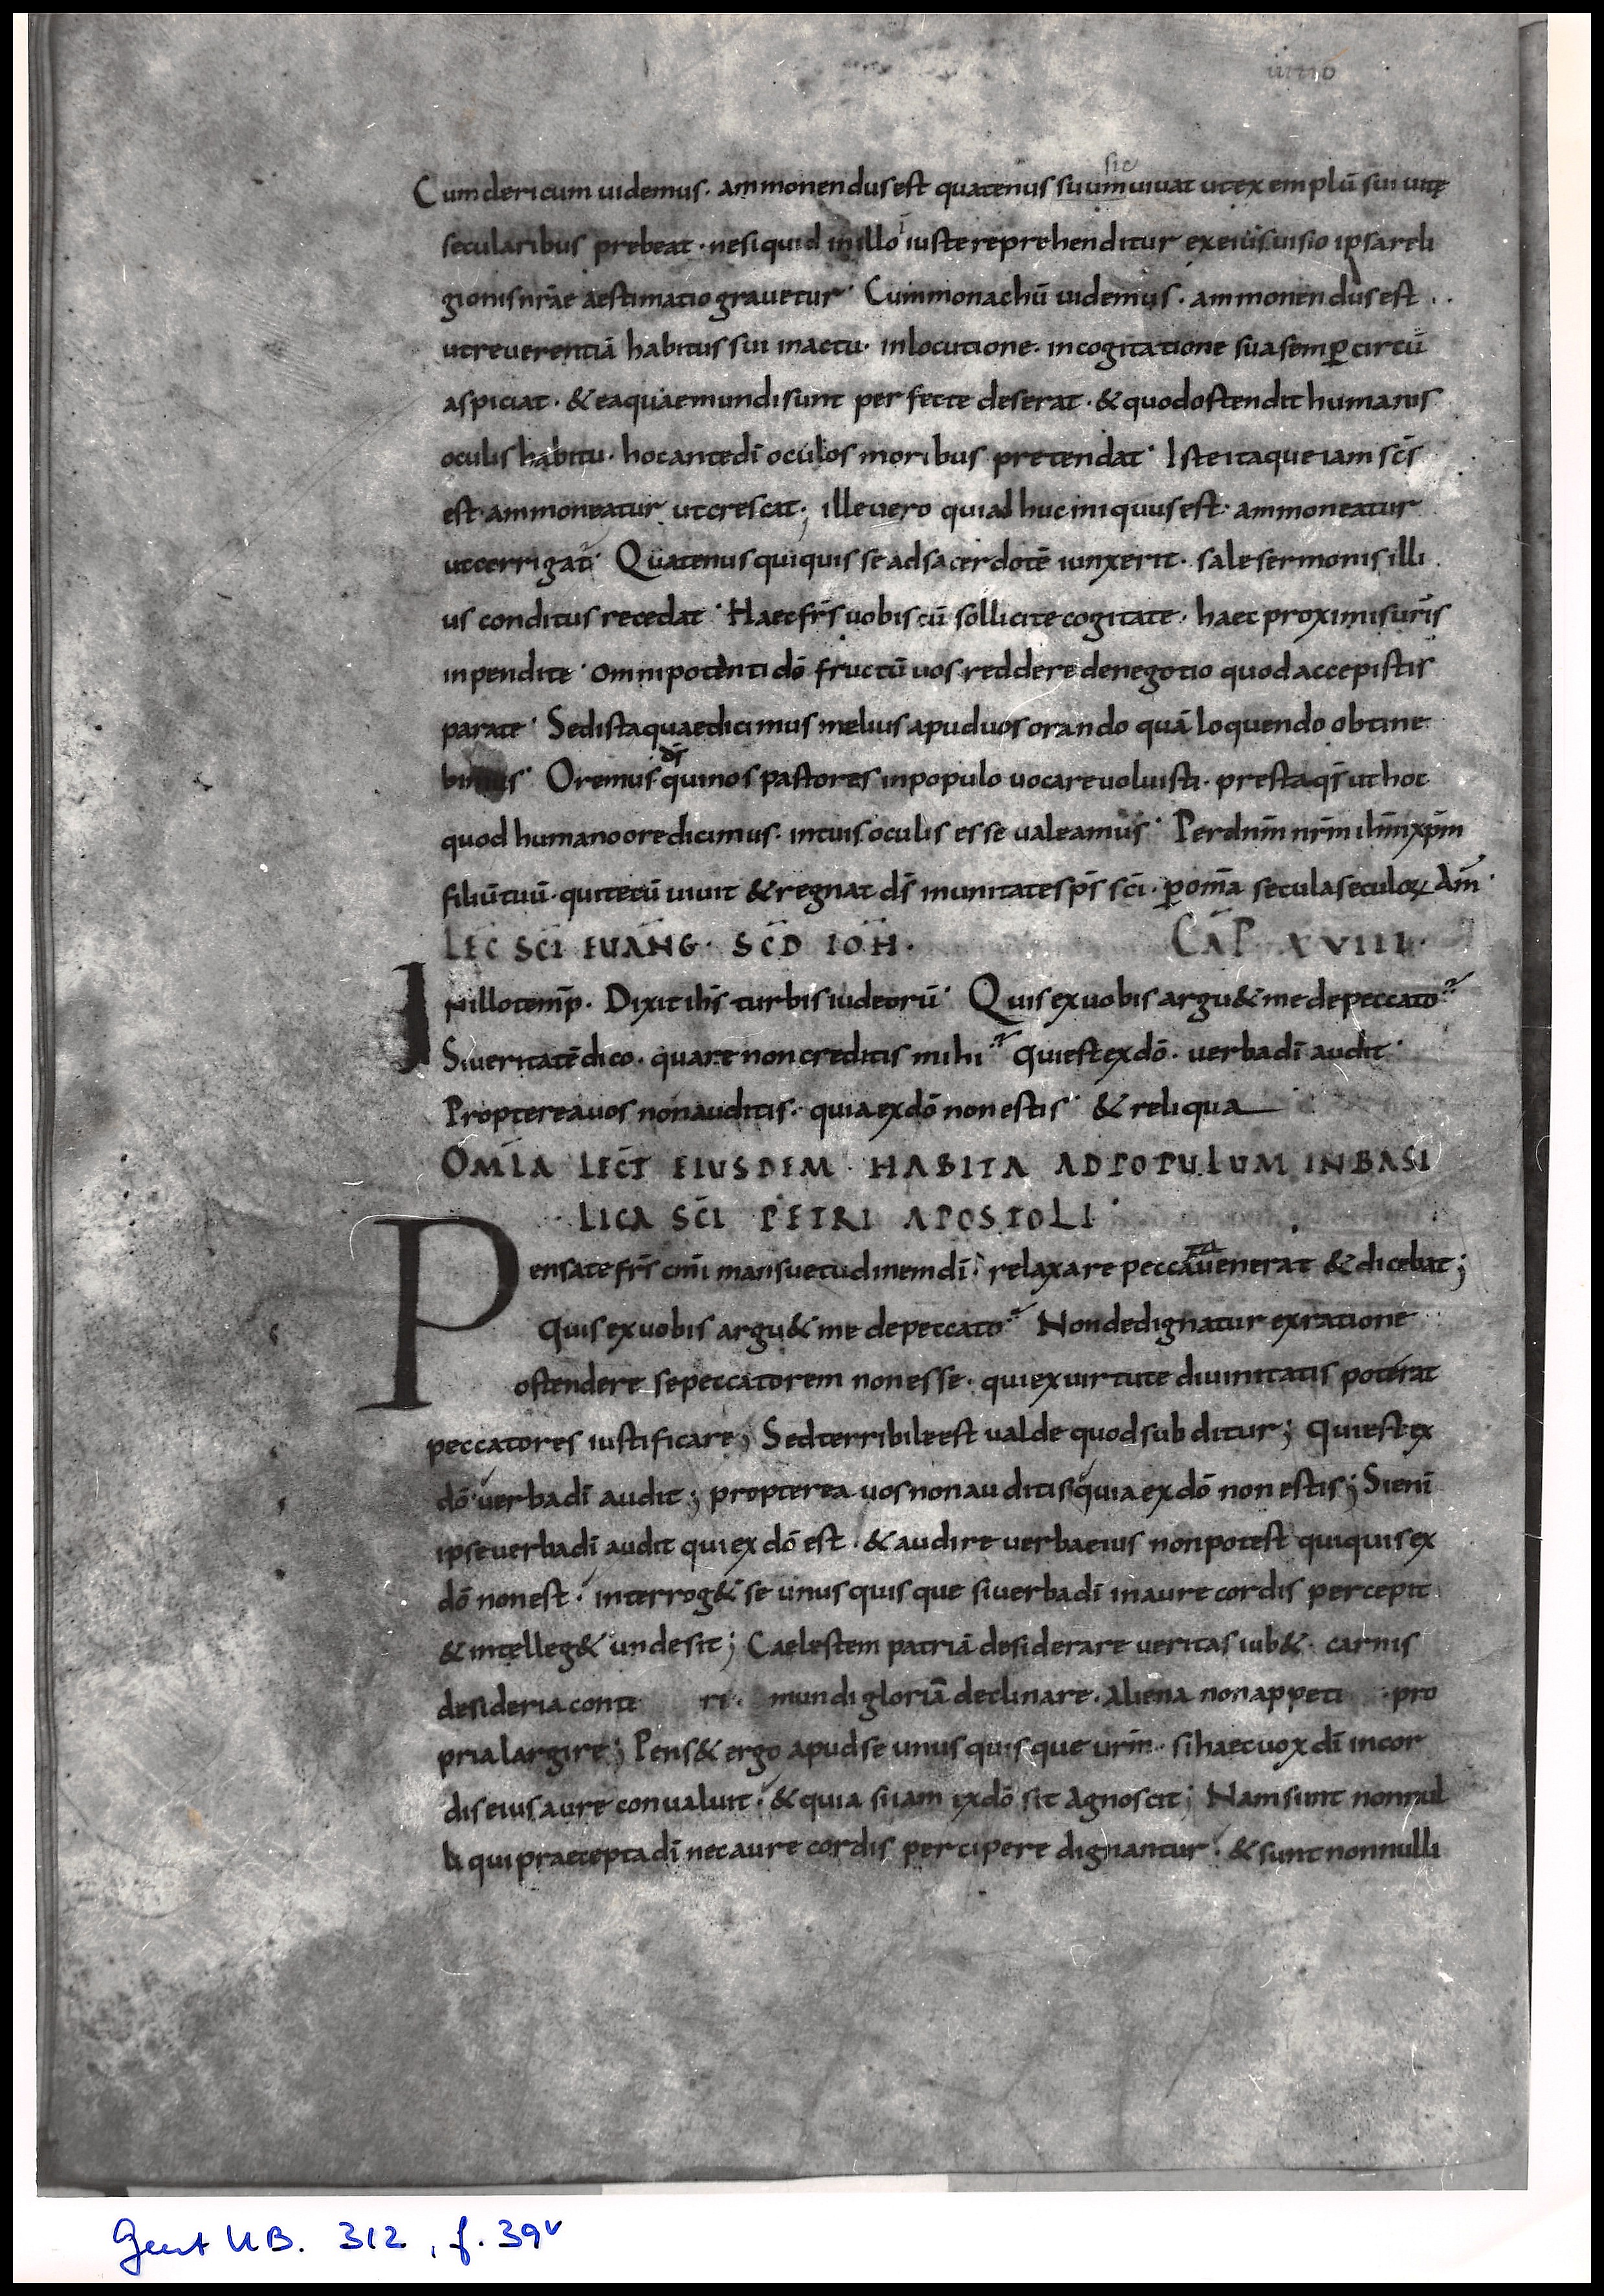 sic
Cum clericum uidemus· ammonendus est quatenus suum uiuat ut exemplū sui uitę
secularibus prebeat· ne si quid in illo iuste reprehenditur ex eius uisio ipsa reli
gionis nr̄ae aestimatio grauetur· Cum monachū uidemus· ammonendus est
ut reuerentiā habitus sui in actu· in locutione· in cogitatione sua semp̄ circū
aspiciat· & ea quae mundi sunt perfecte deserat· & quod ostendit humanis
oculis habitu· hoc ante dī oculos moribus pretendat· Iste itaque iam sc̄s
est· ammoneatur ut crescat; ille uero qui adhuc iniquus est· ammoneatur
ut corrigat· Quatenus quiquis se ad sacerdotē iunxerit· sale sermonis illi
us conditus recedat· Haec fr̄s uobiscū sollicite cogitate· haec proximis ur̄is
inpendite· omnipotenti dō fructū uos reddere de negotio quod accepistis
parate· Sed ista quae dicimus melius apud uos orando quā loquendo obtine
bimus· Oremus· ds̄ qui nos pastores in populo uocare uoluisti· presta qs̄ ut hoc
quod humano ore dicimus· in tuis oculis esse ualeamus· Per dn̄m nr̄m ih̄m xp̄m
filiū tuū· qui tecū uiuit & regnat ds̄ in unitate sp̄s sc̄i· p̄ om̄a secula seculoꝝ Am̄·
LEC̄ SC̄I EUANḠ· SC̄D IOH̄· CAP̄ XVIII·
IN illo temp̄· Dixit ih̄s turbis iudeorū· Quis ex uobis argu& me de peccato?
Si ueritatē dico· quare non creditis mihi? Qui est ex dō· uerba dī audit·
Propterea uos non auditis· quia ex dō non estis· & reliqua
OM̄LA LECT̄ EIUSDEM· HABITA AD POPULUM IN BASI
LICA SC̄I PETRI APOSTOLI·
Pensate fr̄s cm̄i mansuetudinem dī· relaxare pecca uenerat & dicebat;
Quis ex uobis argu& me de peccato? Non dedignatur ex ratione
ostendere se peccatorem non esse· qui ex uirtute diuinitatis poterat
peccatores iustificare; Sed terribile est ualde quod subditur; Qui est ex
dō uerba dī audit; propterea uos non auditis quia ex dō non estis; Si eni
ipse uerba dī audit qui ex dō est· & audire uerba eius non potest quiquis ex
dō non est· interrog& se unus quisque si uerba dī in aure cordis percepit
& intelleg& unde sit; Caelestem patriā desiderare ueritas iub&· carnis
desideria conte re· mundi gloriā declinare· Aliena non appete· pro
pria largire; Pens& ergo apud se unus quisque ur̄m· si haec uox dī in cor
dis eius aure conualuit· & quia s iam ex dō sit agnoscit; Nam sunt nonnul
li qui praecepta dī nec aure cordis percipere dignantur· & sunt nonnulli
Gent UB. 312, f. 39v